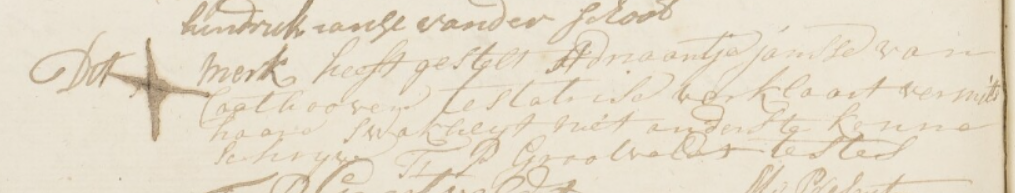 hendrick janse vander schoot
Dit merk heeft gestelt Adriaantje janse van
Cathooven testatrise verklaart vermits
haare swakheyt niet anders te konne
schryve F: P Grootveldt testes